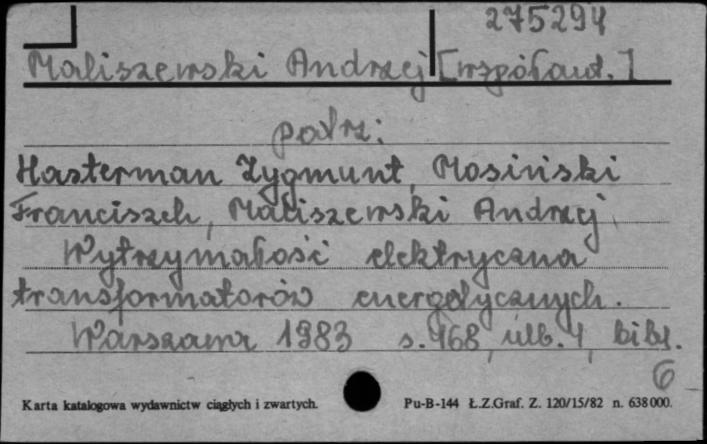 275294
Maliszewski Andrzej [współaut.]
patrz:
Hasterman Zygmunt, Mosiński
Franciszek, Maliszewski Andrzej.
Wytrzymałość elektryczna
transformatorów energetycznych.
Warszawa 1983 s. 468, nlb. 1, bibl.
6
Karta katalogowa wydawnictw ciągłych i zwartych. Pu-B-144 Ł.Z.Graf. Z. 120/15/82 n. 638 000.